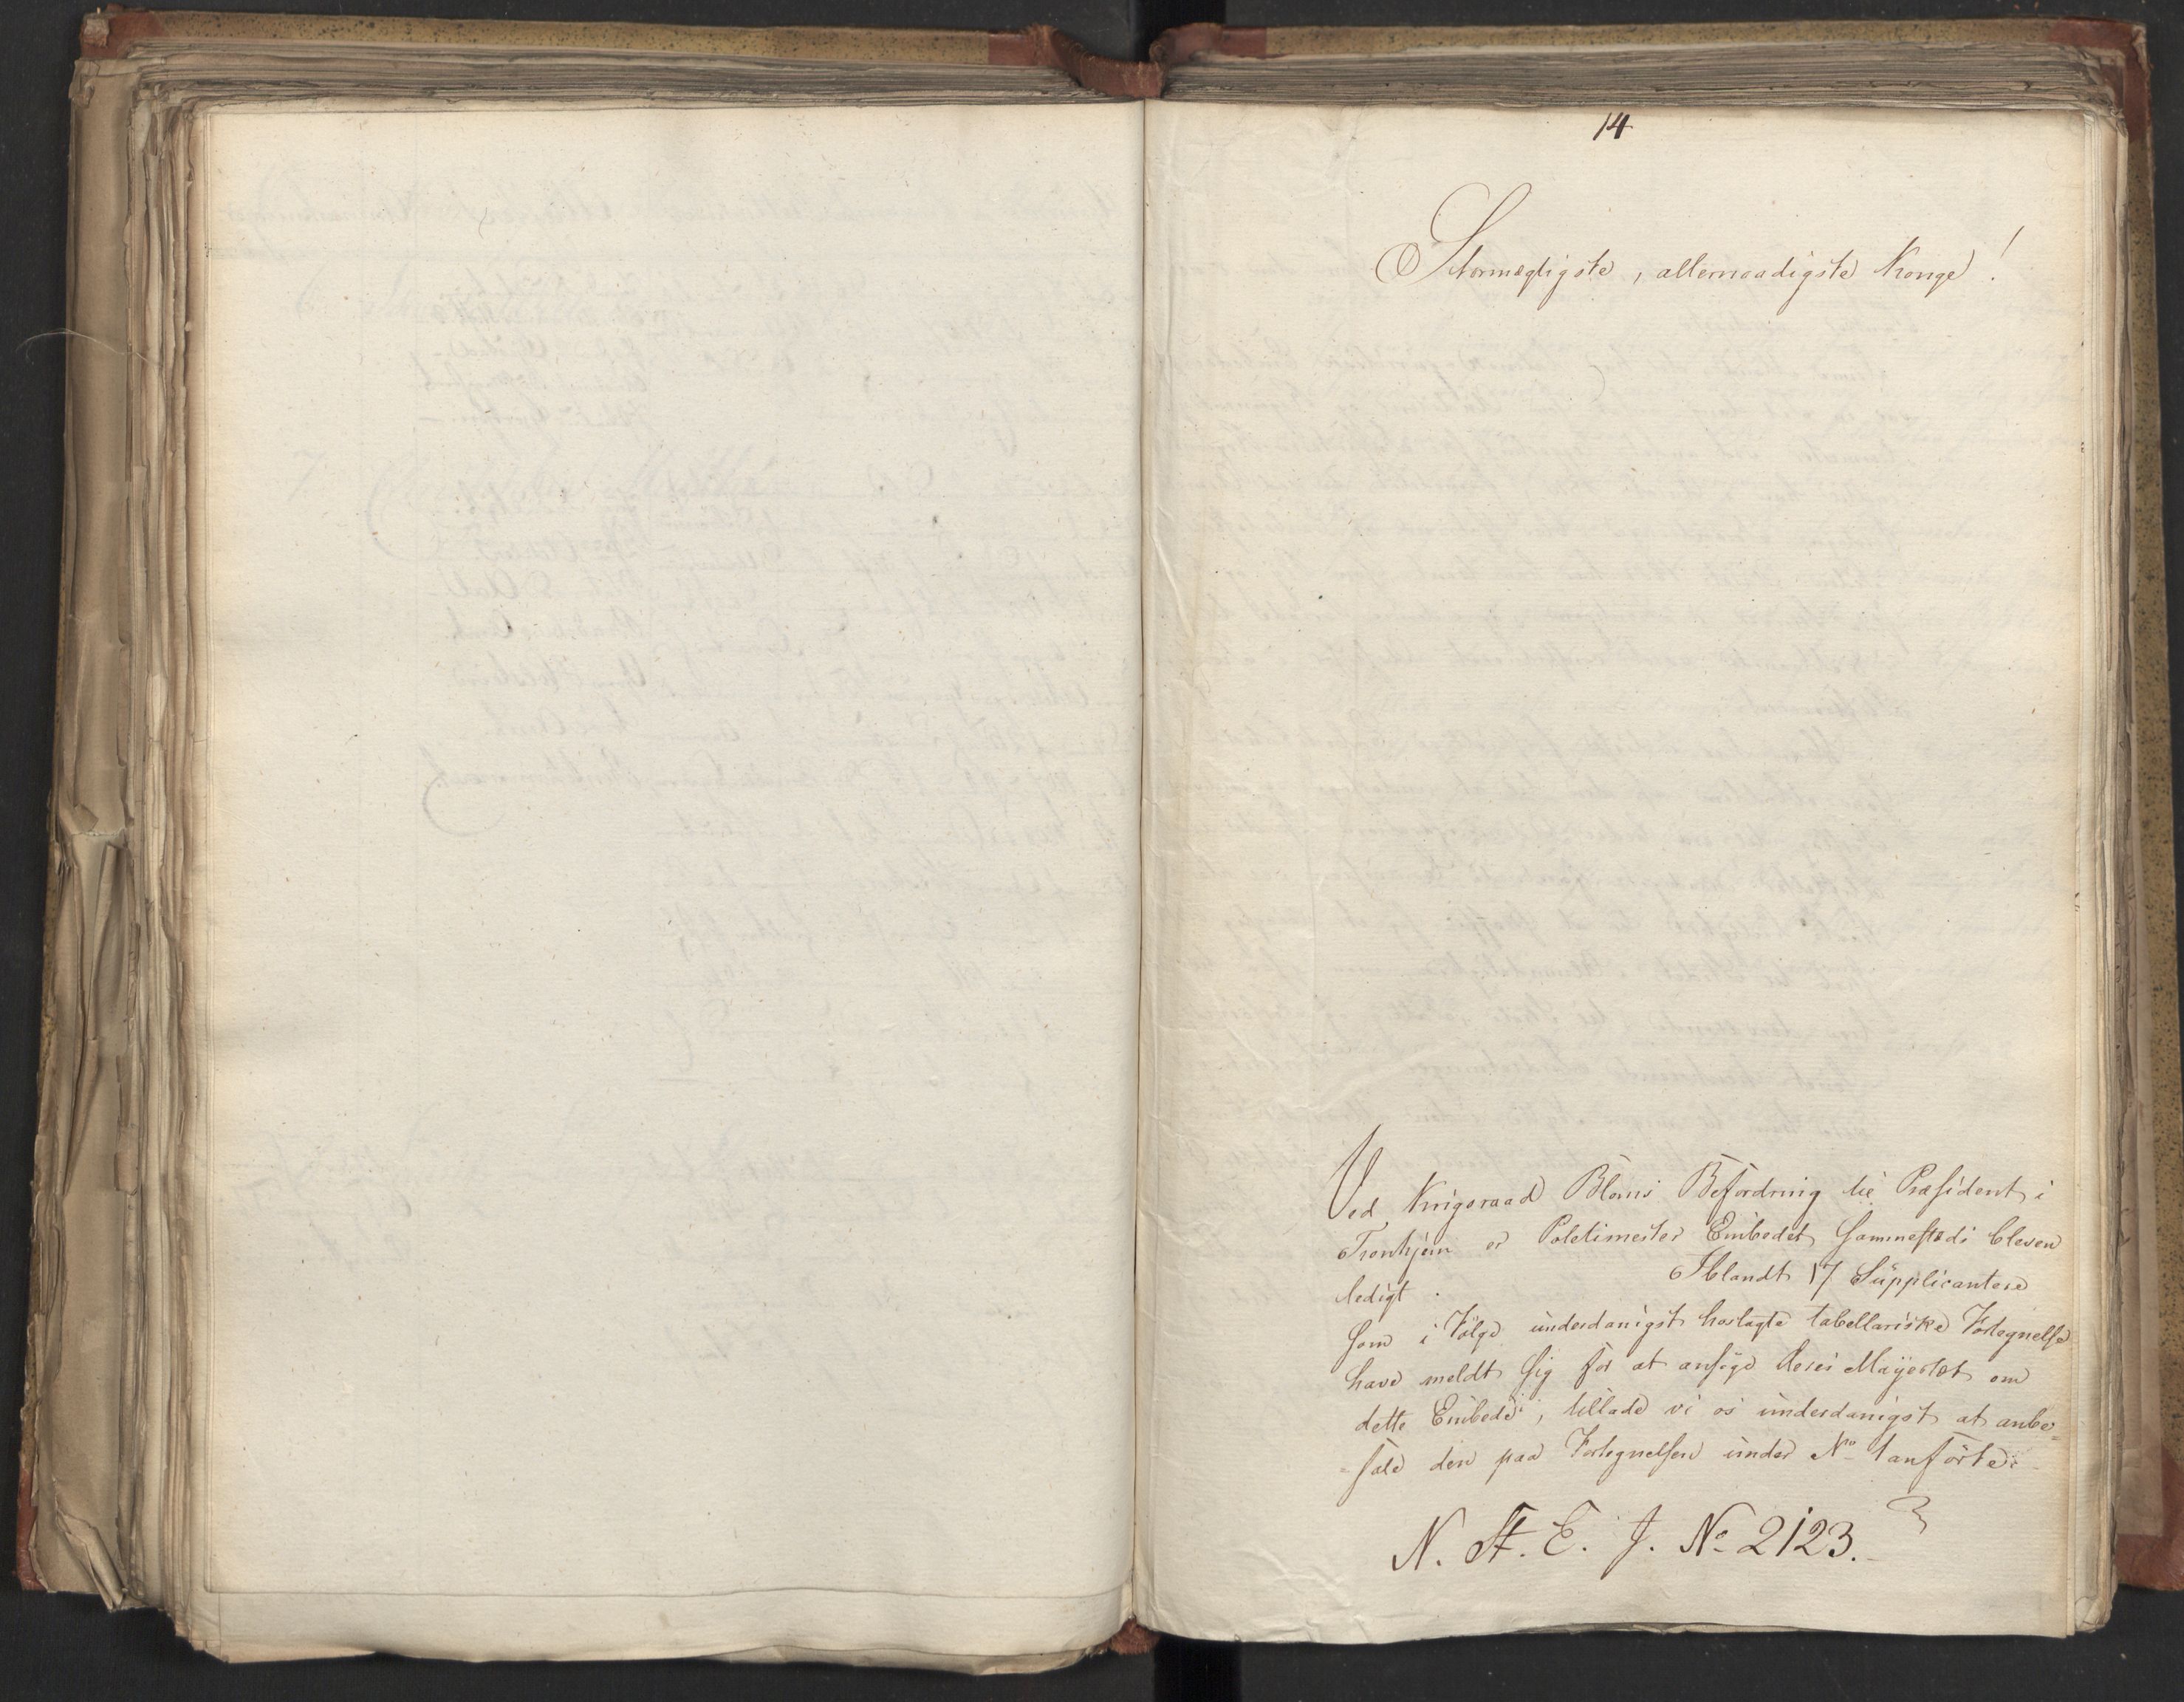 14
Stormægtigste, allernaadigste Konge!
Ved Krigsraad Bloms Befordring til Præsident i
Tronhjem er Politimester Embedet sammesteds bleven
ledigt. Iblandt 17 Supplicantere
som i Følge underdanigst hoslagte tabellariske Fortegnelse
have meldt sig for at ansøge Deres Majestæt om
dette Embede, tillade vi os underdanigst at anbe=
=fale den paa Fortegnelsen under No 1 anførte
N. St. E. J. No 2123.